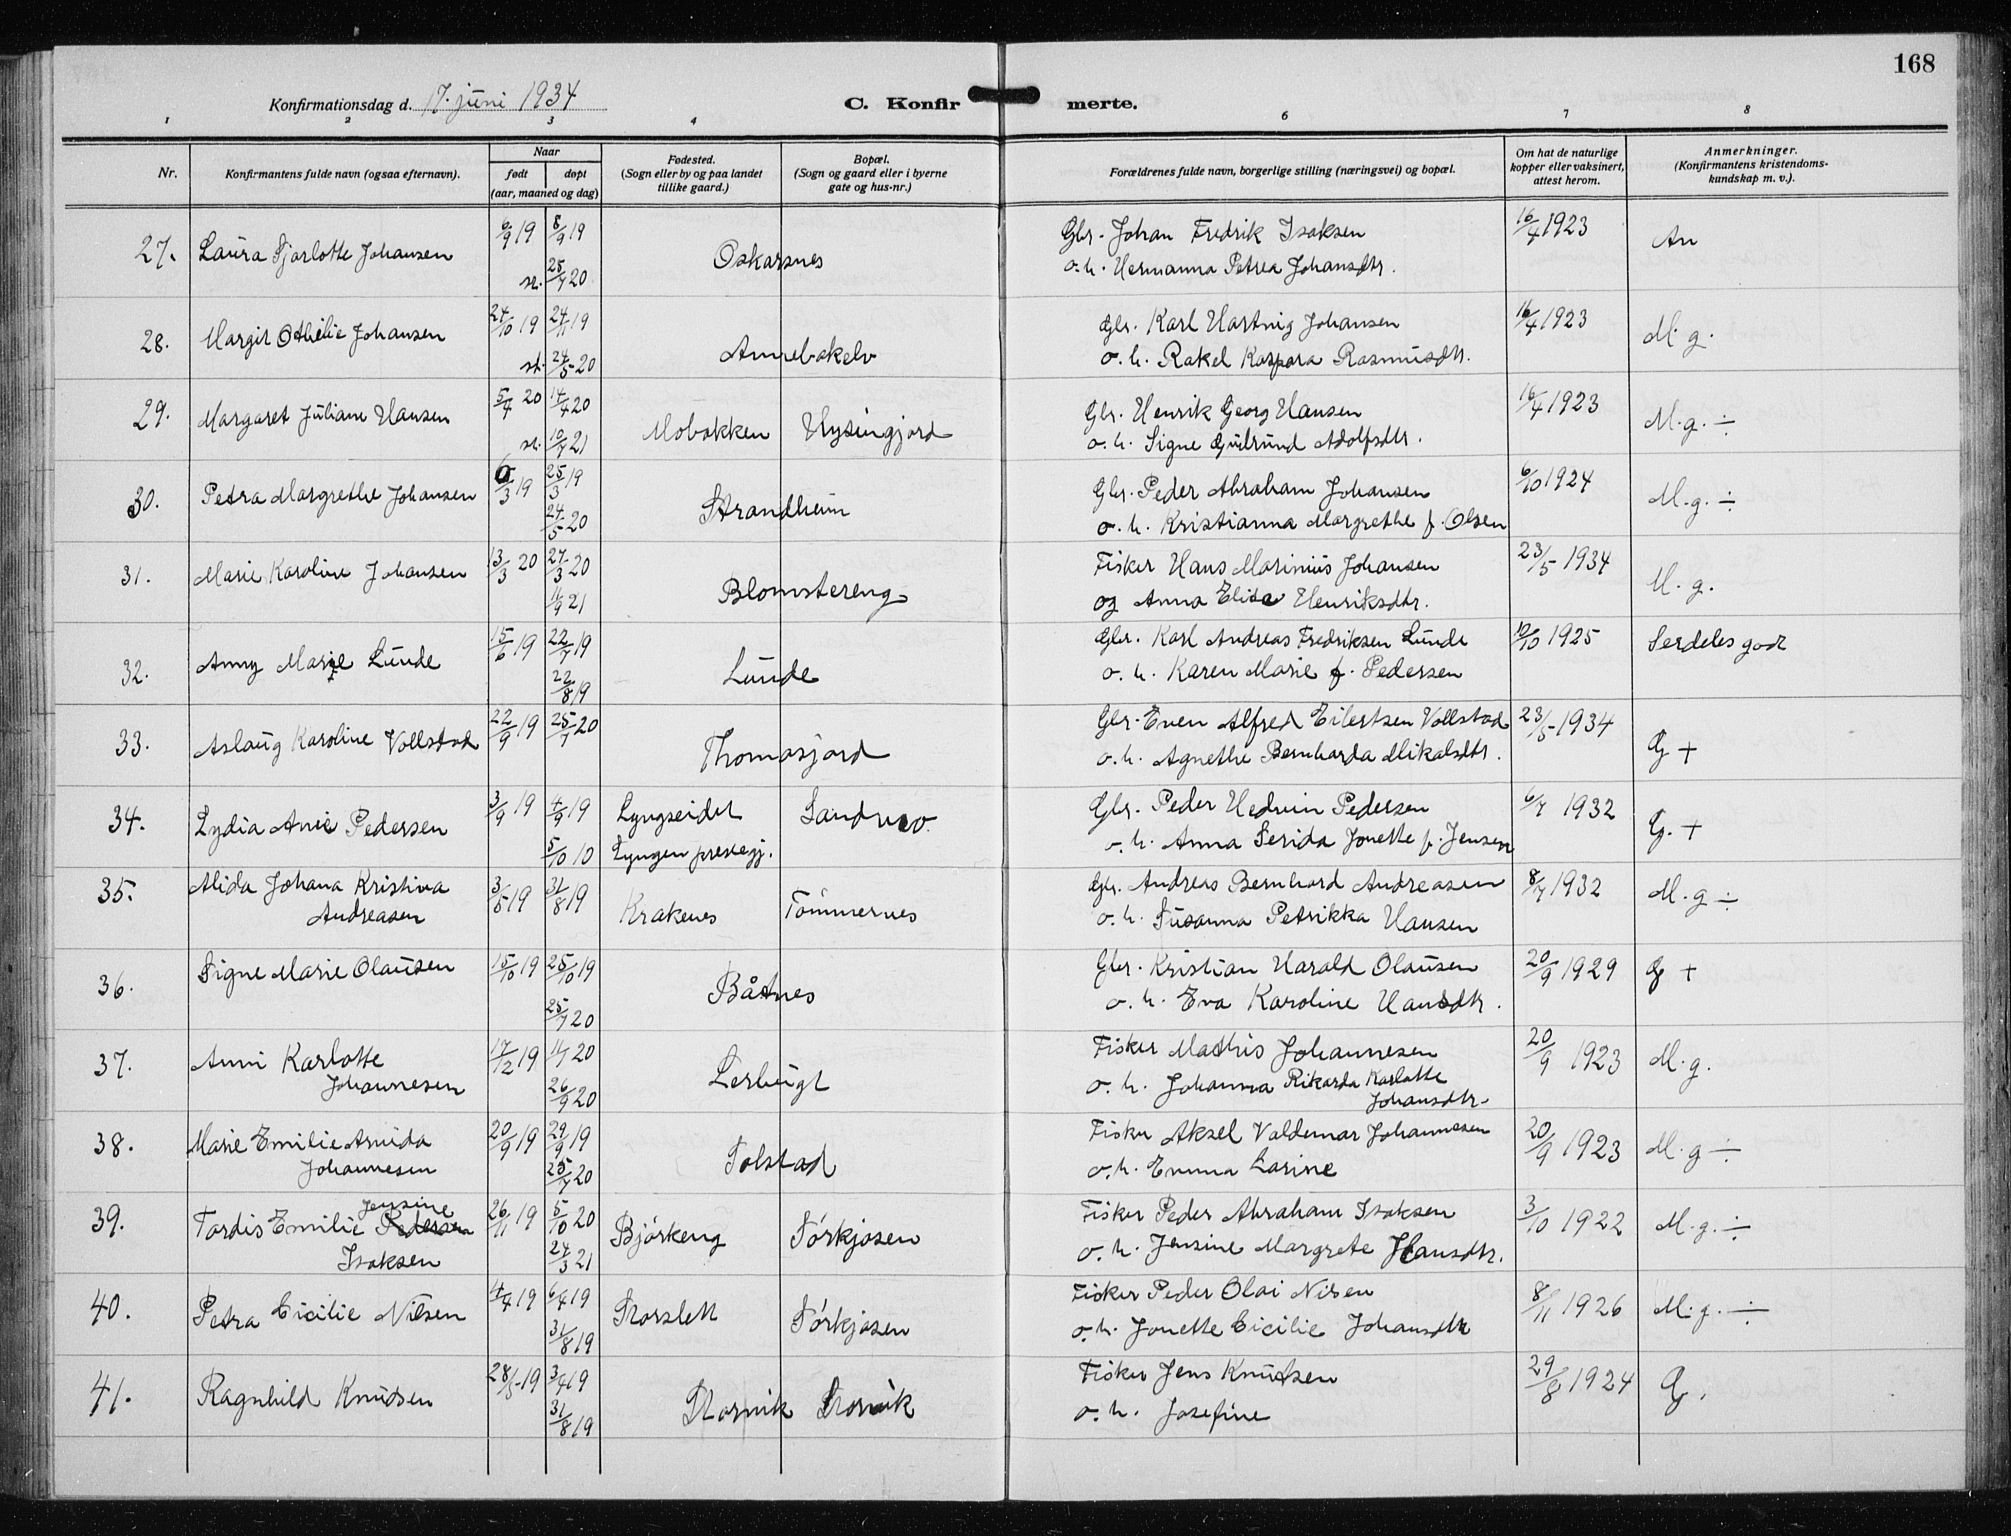 168
Konfirmationsdag d. 17. juni 1934
C. Konfirmerte.
1 2 3 4 6 7 8
Nr.
Konfirmantens fulde navn (ogsaa efternavn).
Naar
født
døpt
(aar, maaned og dag)
Fødested.
(Sogn eller by og paa landet
tillike gaard.)
Bopæl.
(Sogn og gaard eller i byerne
gate og hus-nr.)
Forældrenes fulde navn, borgerlige stilling (næringsvei) og bopæl.
Om hat de naturlige
kopper eller vaksinert,
attest herom.
Anmerkninger.
(Konfirmantens kristendoms-
kundskap m. v.).
27. Laura Sjarlotte Johansen 6/9 19 8/9 19 Oskarsnes Gbr. Johan Fredrik Isaksen 16/4 1923 An
st. 25/7 20 o. h. Hermanna Petrea Johansdtr.
28. Margit Othelie Johansen 24/10 19 24/11 19 Annebakelv Gbr. Karl Hartvig Johansen 16/4 1923 M. g.
st. 24/5 20 o. h. Rakel Kaspara Rasmusdtr.
29. Margaret Juliane Hansen 5/4 20 14/4 20 Mobakken Hysingjord Gbr. Henrik Georg Hansen 16/4 1923 M. g. ÷
st. 10/7 21 o. h. Signe Gudrund Adolfsdtr.
30. Petra Margrethe Johansen 6/3 19 25/3 19 Strandheim Gbr. Peder Abraham Johansen 6/10 1924 M. g. ÷
24/5 20 o. h. Kristianna Margrethe f. Olsen
31. Marie Karoline Johansen 13/3 20 27/3 20 Blomstereng Fisker Hans Marinius Johansen 23/5 1934 M. g.
11/9 21 og Anna Elise Henriksdtr.
32. Anny Marie Lunde 15/6 19 22/7 19 Lunde Gbr. Karl Andreas Fredriksen Lunde 12/10 1925 Serdeles god
22/8 19 o. h. Karen Marie f. Pedersen
33. Aslaug Karoline Vollstad 22/9 19 25/7 20 Thomasjord Gbr. Even Alfred Eilertsen Vollstad 23/5 1934 G +
o. h. Agnethe Bernharda Mikalsdtr.
34. Lydia Anie Pedersen 3/9 19 4/9 19 Lyngseidet Sandmo Gbr. Peder Hedvin Pedersen 6/7 1932 G. +
5/10 10 Lyngen prestegj. o. h. Anna Serida Jonette f. Jensen
35. Alida Johana Kristina 3/5 19 31/8 19 Krakenes Tömmernes Gbr. Andreas Bernhard Andreasen 8/7 1932 M. g ÷
Andreasen o. h. Susanna Petrikka Hansen
36. Signe Marie Olausen 15/10 19 25/10 19 Båtnes Gbr. Kristian Harald Olausen 20/9 1929 G +
25/7 20 o. h. Eva Karoline Hansdtr.
37. Anni Karlotte 17/12 19 11/7 20 Lerbugt Fisker Mathis Johannesen 20/9 1923 M. g.
Johannesen 26/9 20 o. h. Johanna Rikarda Karlotte
Johansdtr.
38. Marie Emilie Arnida 20/9 19 29/9 19 Solstad Fisker Aksel Valdemar Johannesen 20/9 1923 M. g ÷
Johannesen 25/7 20 o. h. Emma Larine
Jensine
39. Tordis Emilie Pedersen 26/11 19 5/10 20 Björkeng Sörkjosen Fisker Peder Abraham Isaksen 3/10 1922 M. g. ÷
Isaksen 24/3 21 o. h. Jensine Margrete Hansdtr.
40. Petra Cicilie Nilsen 4/4 19 6/4 19 Storslett Sörkjosen Fisker Peder Olai Nilsen 8/11 1926 M. g. ÷
31/8 19 o. h. Jonette Cicilie Johansdtr
41. Ragnhild Knudsen 28/5 19 3/7 19 Storvik Storvik Fisker Jens Knutsen 29/8 1924 G.
31/8 19 o. h. Josefine